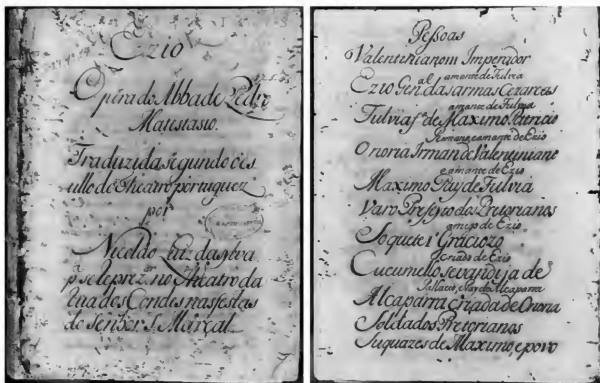 Ezio
Opera do Abbade Pedro
Mettastasio.
Traduzida segundo o es
tillo do Theatro portuguez
por
Nicolao Luiz da Sylva
pa se reprezar no Theatro da
Rua dos Condes nas festas
do Senhor S. Marçal
Peſsoas
Valentiniano III Imperador
amante de Fulvia
Ezio Genal das armas Cezareas
amante de Fulvia
Fulvia fa de Maximo Patricio
Romano e amante de Ezio
Onoria Irman de Valentiniano
e amante de Ezio
Maximo Pay de Fulvia
Varo Prefeyto dos Pretorianos
amigo de Ezio
Soquete 1 Graciozo
criado de Ezio
Cucumello sevandija de
Palacio, e Pay de Alcaparra
Alcaparra criada de Onoria
Soldados Pretorianos
Suquazes de Maximo, e povo